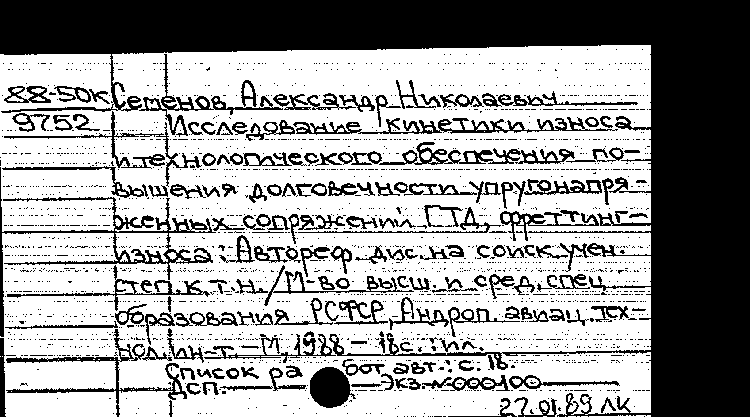 88-50к Семенов, Александр Николаевич
9752 Исследование кинетики износа
и технологического обеспечения по-
вышения долговечности упругонапря-
женных сопряжений ГТД, фреттинг-
износа: Автореф. дис. на соиск. учен.
степ. к.т.н. / М-во высш. и сред. спец
образования РСФСР, Андроп. авиац. тех-
нол. ин-т. - М, 1988 - 18с.: ил.
Список ра бот авт.: с. 18.
Дсп. Экз. №000100
27.01.89 ЛК